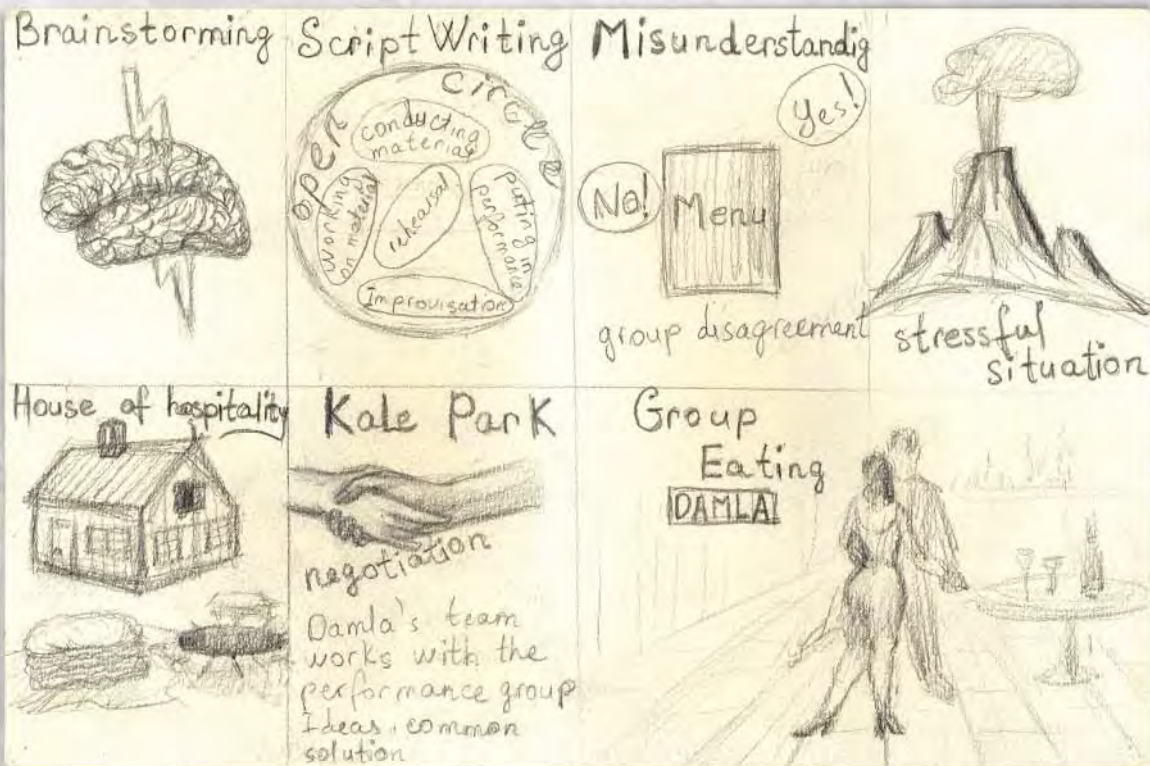 Brainstorming
Script Writing
open circle
conducting
material
working
on material
rehearsal
puting in
performance
Improvisation
Misunderstandig
Yes!
No!
Menu
group disagreement
stressful
situation
House of hospitality
Kale Park
negotiation
Damla's team
works with the
performance group
Ideas. common
solution
Group
Eating
DAMLA